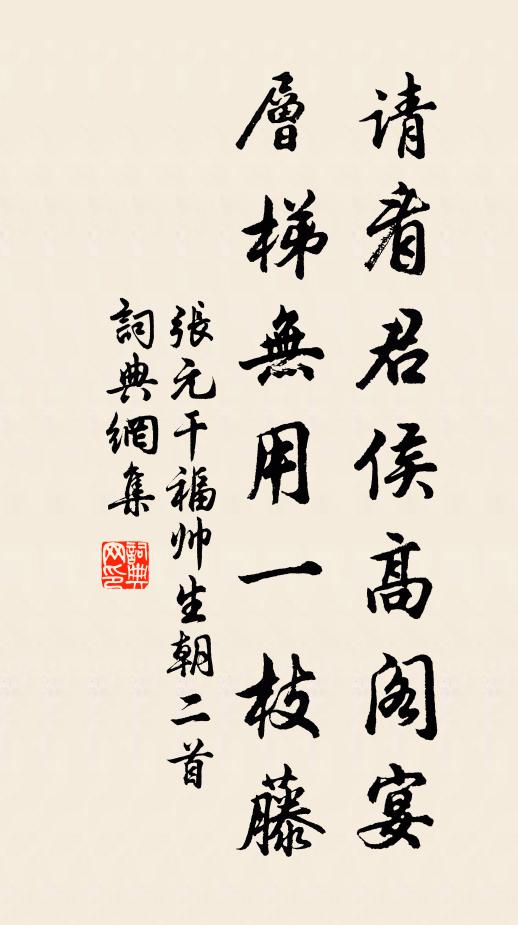 请看君侯高阁宴
層梯無用一枝藤
張元干福帅生朝二首
詞典網集
詞典网印